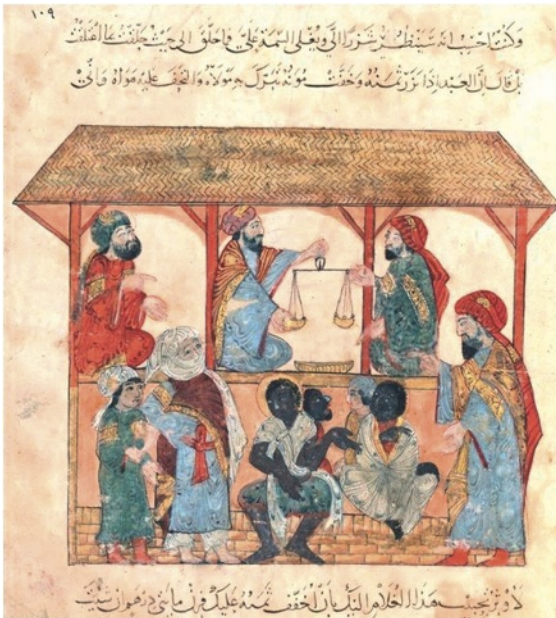 ١٠٩
وكنت احسب انه سينظر شزرا الي ويغلي السمة علي فما حلق الى حيث حلقت
بل قال ان العبد اذا نزر ثمنه وخفت مونه تبرك به مولاه والتحف عليه هواه واني
لاوثر تحبيب هذا الغلام اليك بان اخفف ثمنه عليك فزن مايتي درهم ان شيت